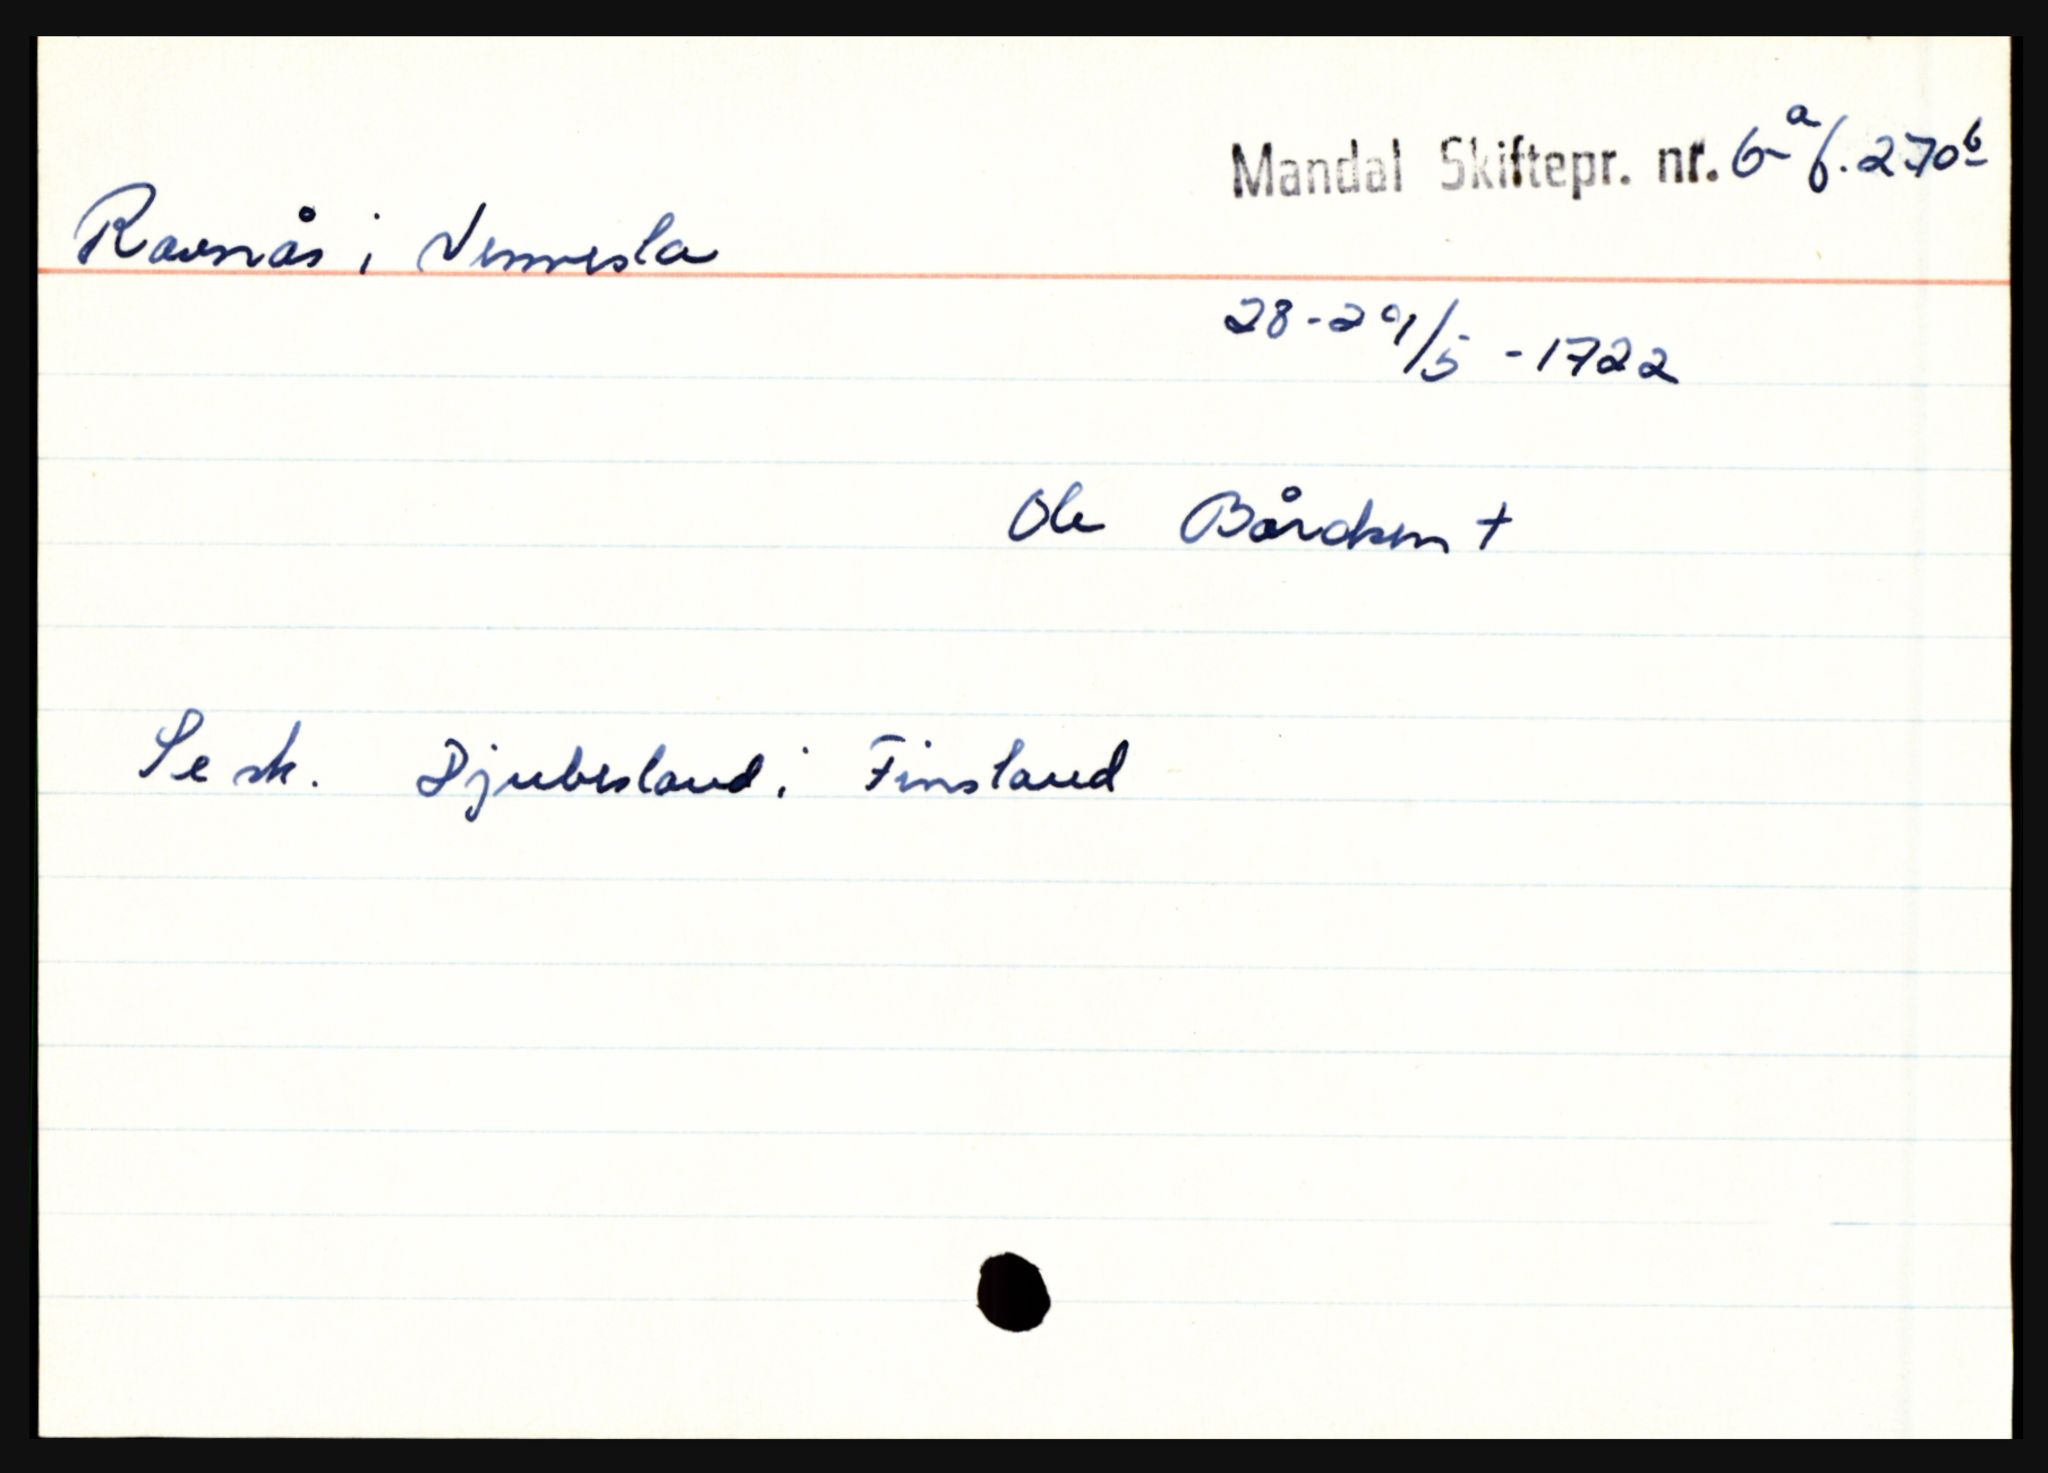 Mandal Skiftepr. nr. 6a f. 270b
Ravnås i Vennesla
28-29/5 - 1722
Ole Bårdsen +
Se sk. Djubesland i Finsland